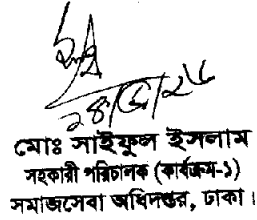 মোঃ সাইফুল ইসলাম
সহকারী পরিচালক (কার্যক্রম-১)
সমাজসেবা অধিদপ্তর, ঢাকা।